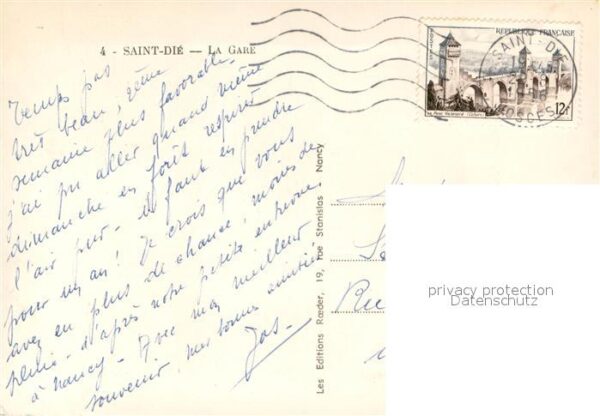 4 - SAINT-DIÉ — LA GARE
RÉPUBLIQUE FRANÇAISE
12F
SAINT-DIÉ
VOSGES
Temps pas
très beau, 2ème
semaine plus favorable.
J'ai pu aller quand même
dimanche en forêt respirer
l'air pur - il faut en prendre
pour un an! Je crois que vous
avez eu plus de chance, moins de
pluie - d'après notre petite entrevue
à Nancy - Avec mon meilleur
souvenir, mes bonnes amitiés
Les Editions Rœder, 19, rue Stanislas - Nancy
privacy protection
Datenschutz